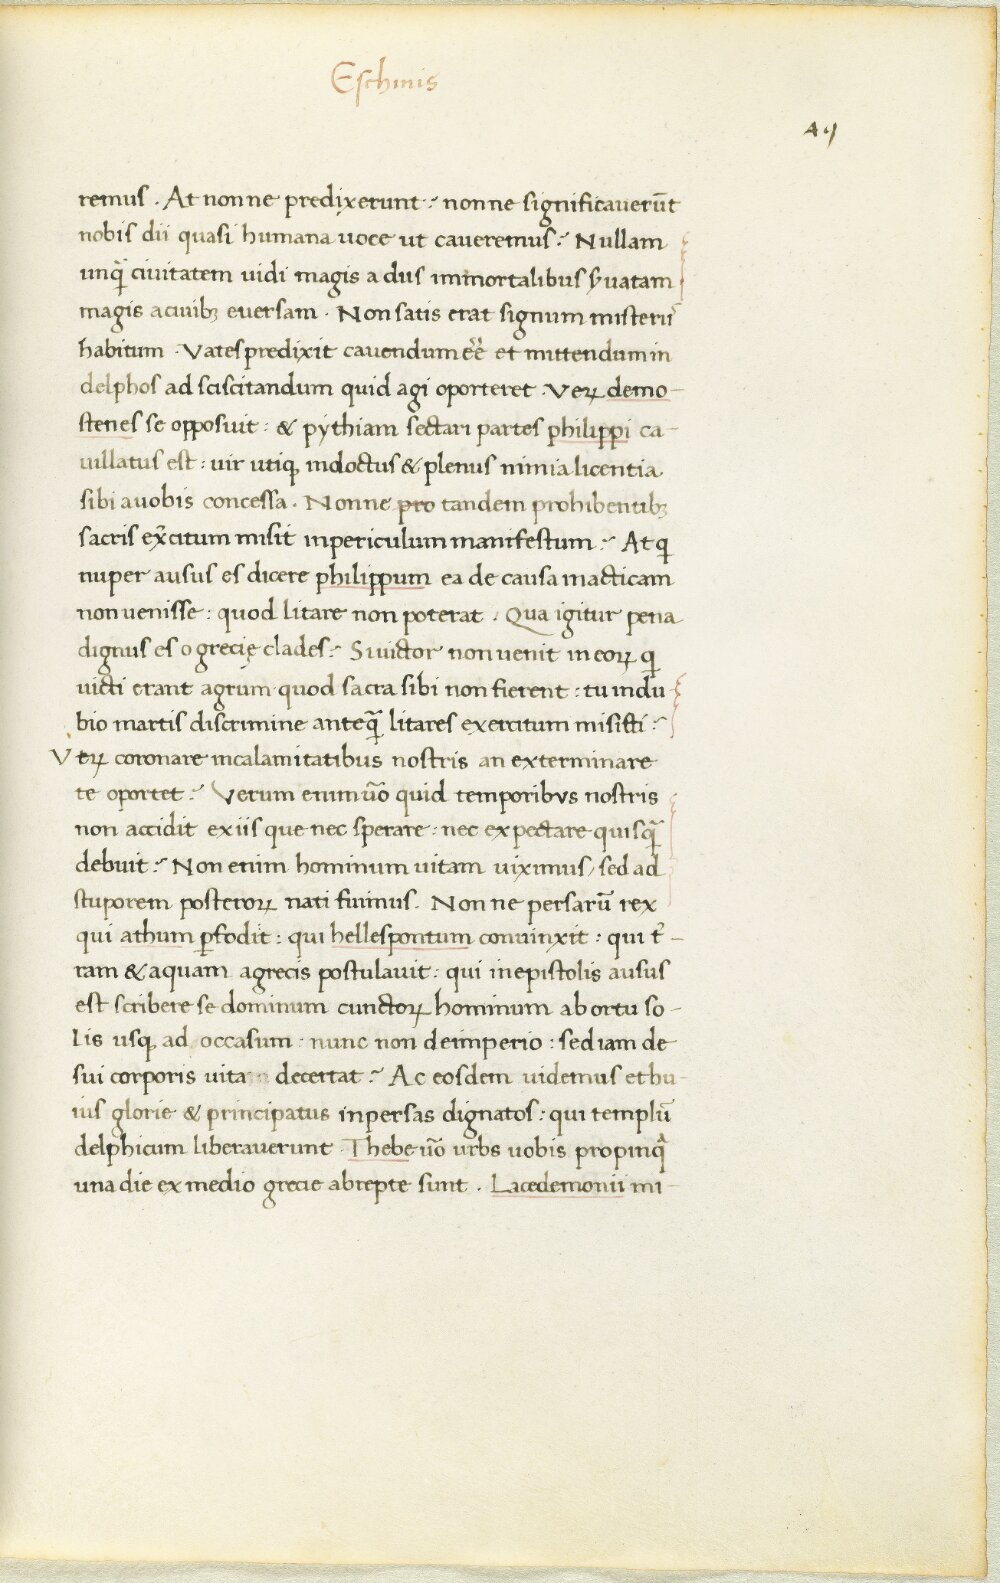 Eschinis
49
remus . At nonne predixerunt ? nonne significauerūt
nobis dii quasi humana uoce ut caueremus ? Nullam
unqͣ̄ ciuitatem uidi magis a diis immortalibus ẜuatam
magis aciuibꝫ euersam . Non satis erat signum misterii
habitum . Vates predixit cauendum eē̄ et mittendum in
delphos ad sciscitandum quid agi oporteret . Veꝝ demo-
stenes se opposuit : & pythiam sectari partes philippi ca-
uillatus est : uir utiqꝫ indoctus & plenus nimia licentia
sibi auobis concessa . Nonne pro tandem prohibentibꝫ
sacris ex̄citum misit inpericulum manifestum ? At qi
nuper ausus es dicere philippum ea de causa inacticam
non uenisse : quod litare non poterat . Qua igitur pena
dignus es o grecię clades ? Si uictor non uenit in eoꝝ qi
uicti erant agrum quod sacra sibi non fierent : tu indu-
bio martis discrimine anteqͣ̄ litares exercitum misisti ?
Veꝝ coronare incalamitatibus nostris an exterminare
te oportet ? Verum enim uō quid temporibus nostris
non accidit ex iis que nec sperare : nec expectare quisqͣ̄
debuit ? Non enim hominum uitam uiximus / sed ad
stuporem posteroꝝ nati fuimus . Nonne persarū rex
qui athum ꝑfodit : qui hellespontum conuinxit : qui t̄-
ram & aquam agrecis postulauit : qui inepistolis ausus
est scribere se dominum cunctoꝝ hominum ab ortu so-
lis usqꝫ ad occasum : nunc non deimperio : sed iam de
sui corporis uita decertat ? Ac eosdem uidemus et hu-
ius glorie & principatus inpersas dignatos : qui templū
delphicum liberauerunt . Thebe uō urbs uobis propinqͣ
una die ex medio grecie abrepte sunt . Lacedemonii mi-